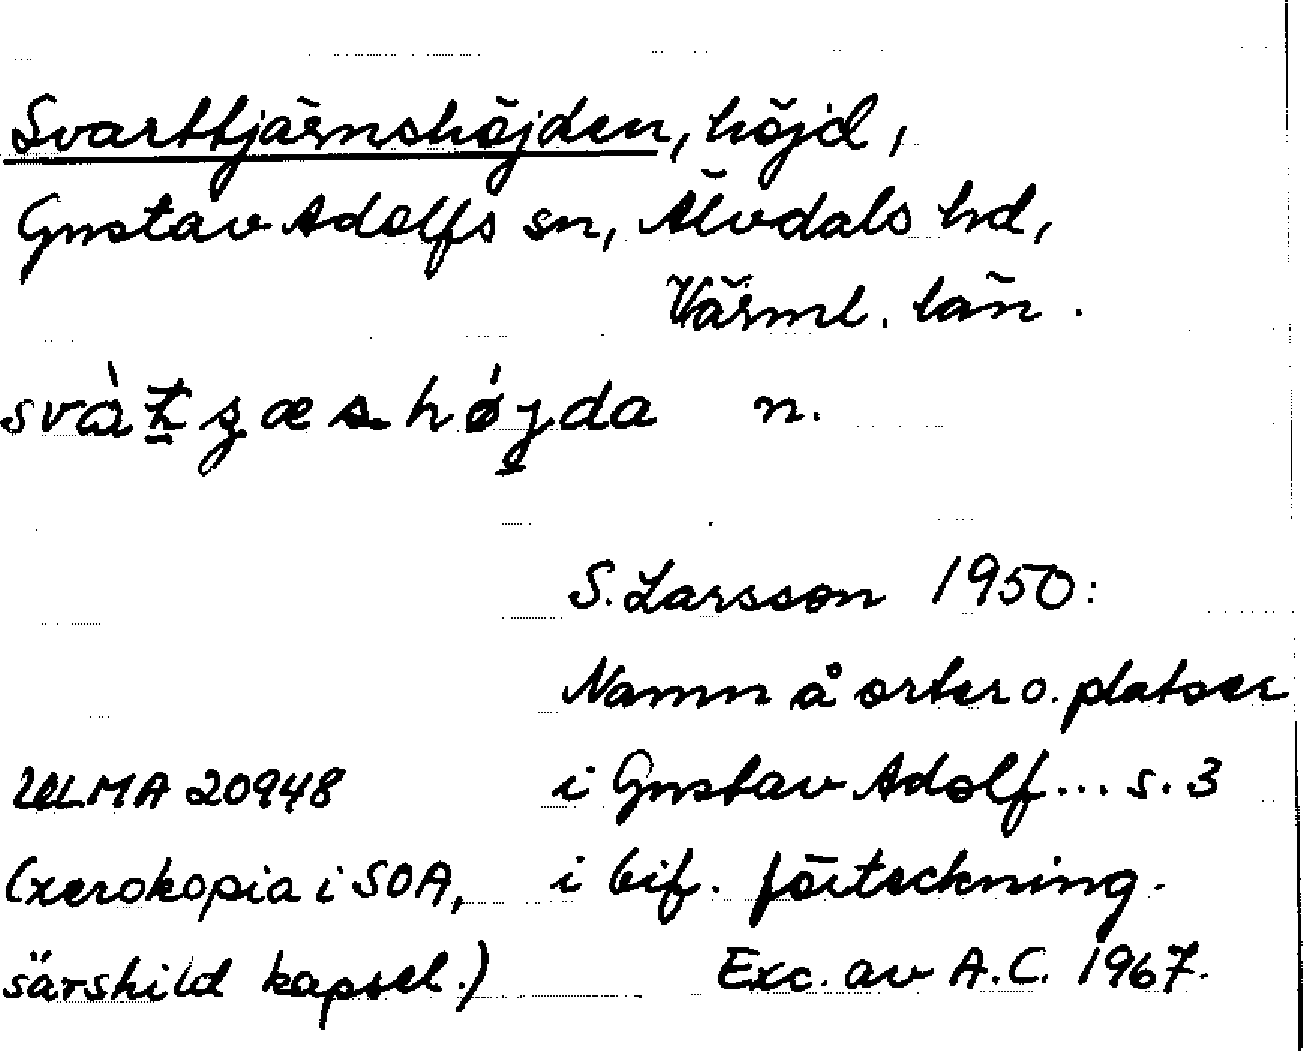 Svarttjärnshöjden, höjd,
Gustav Adolfs sn, Älvdals hd,
Värml. län.
n.
S. Larsson 1950:
Namn å orter o. platser
ULMA 20948 i Gustav Adolf... s. 3
(xerokopia i SOA, i bif. förteckning.
särskild kapsel.) Exc. av A.C. 1967.